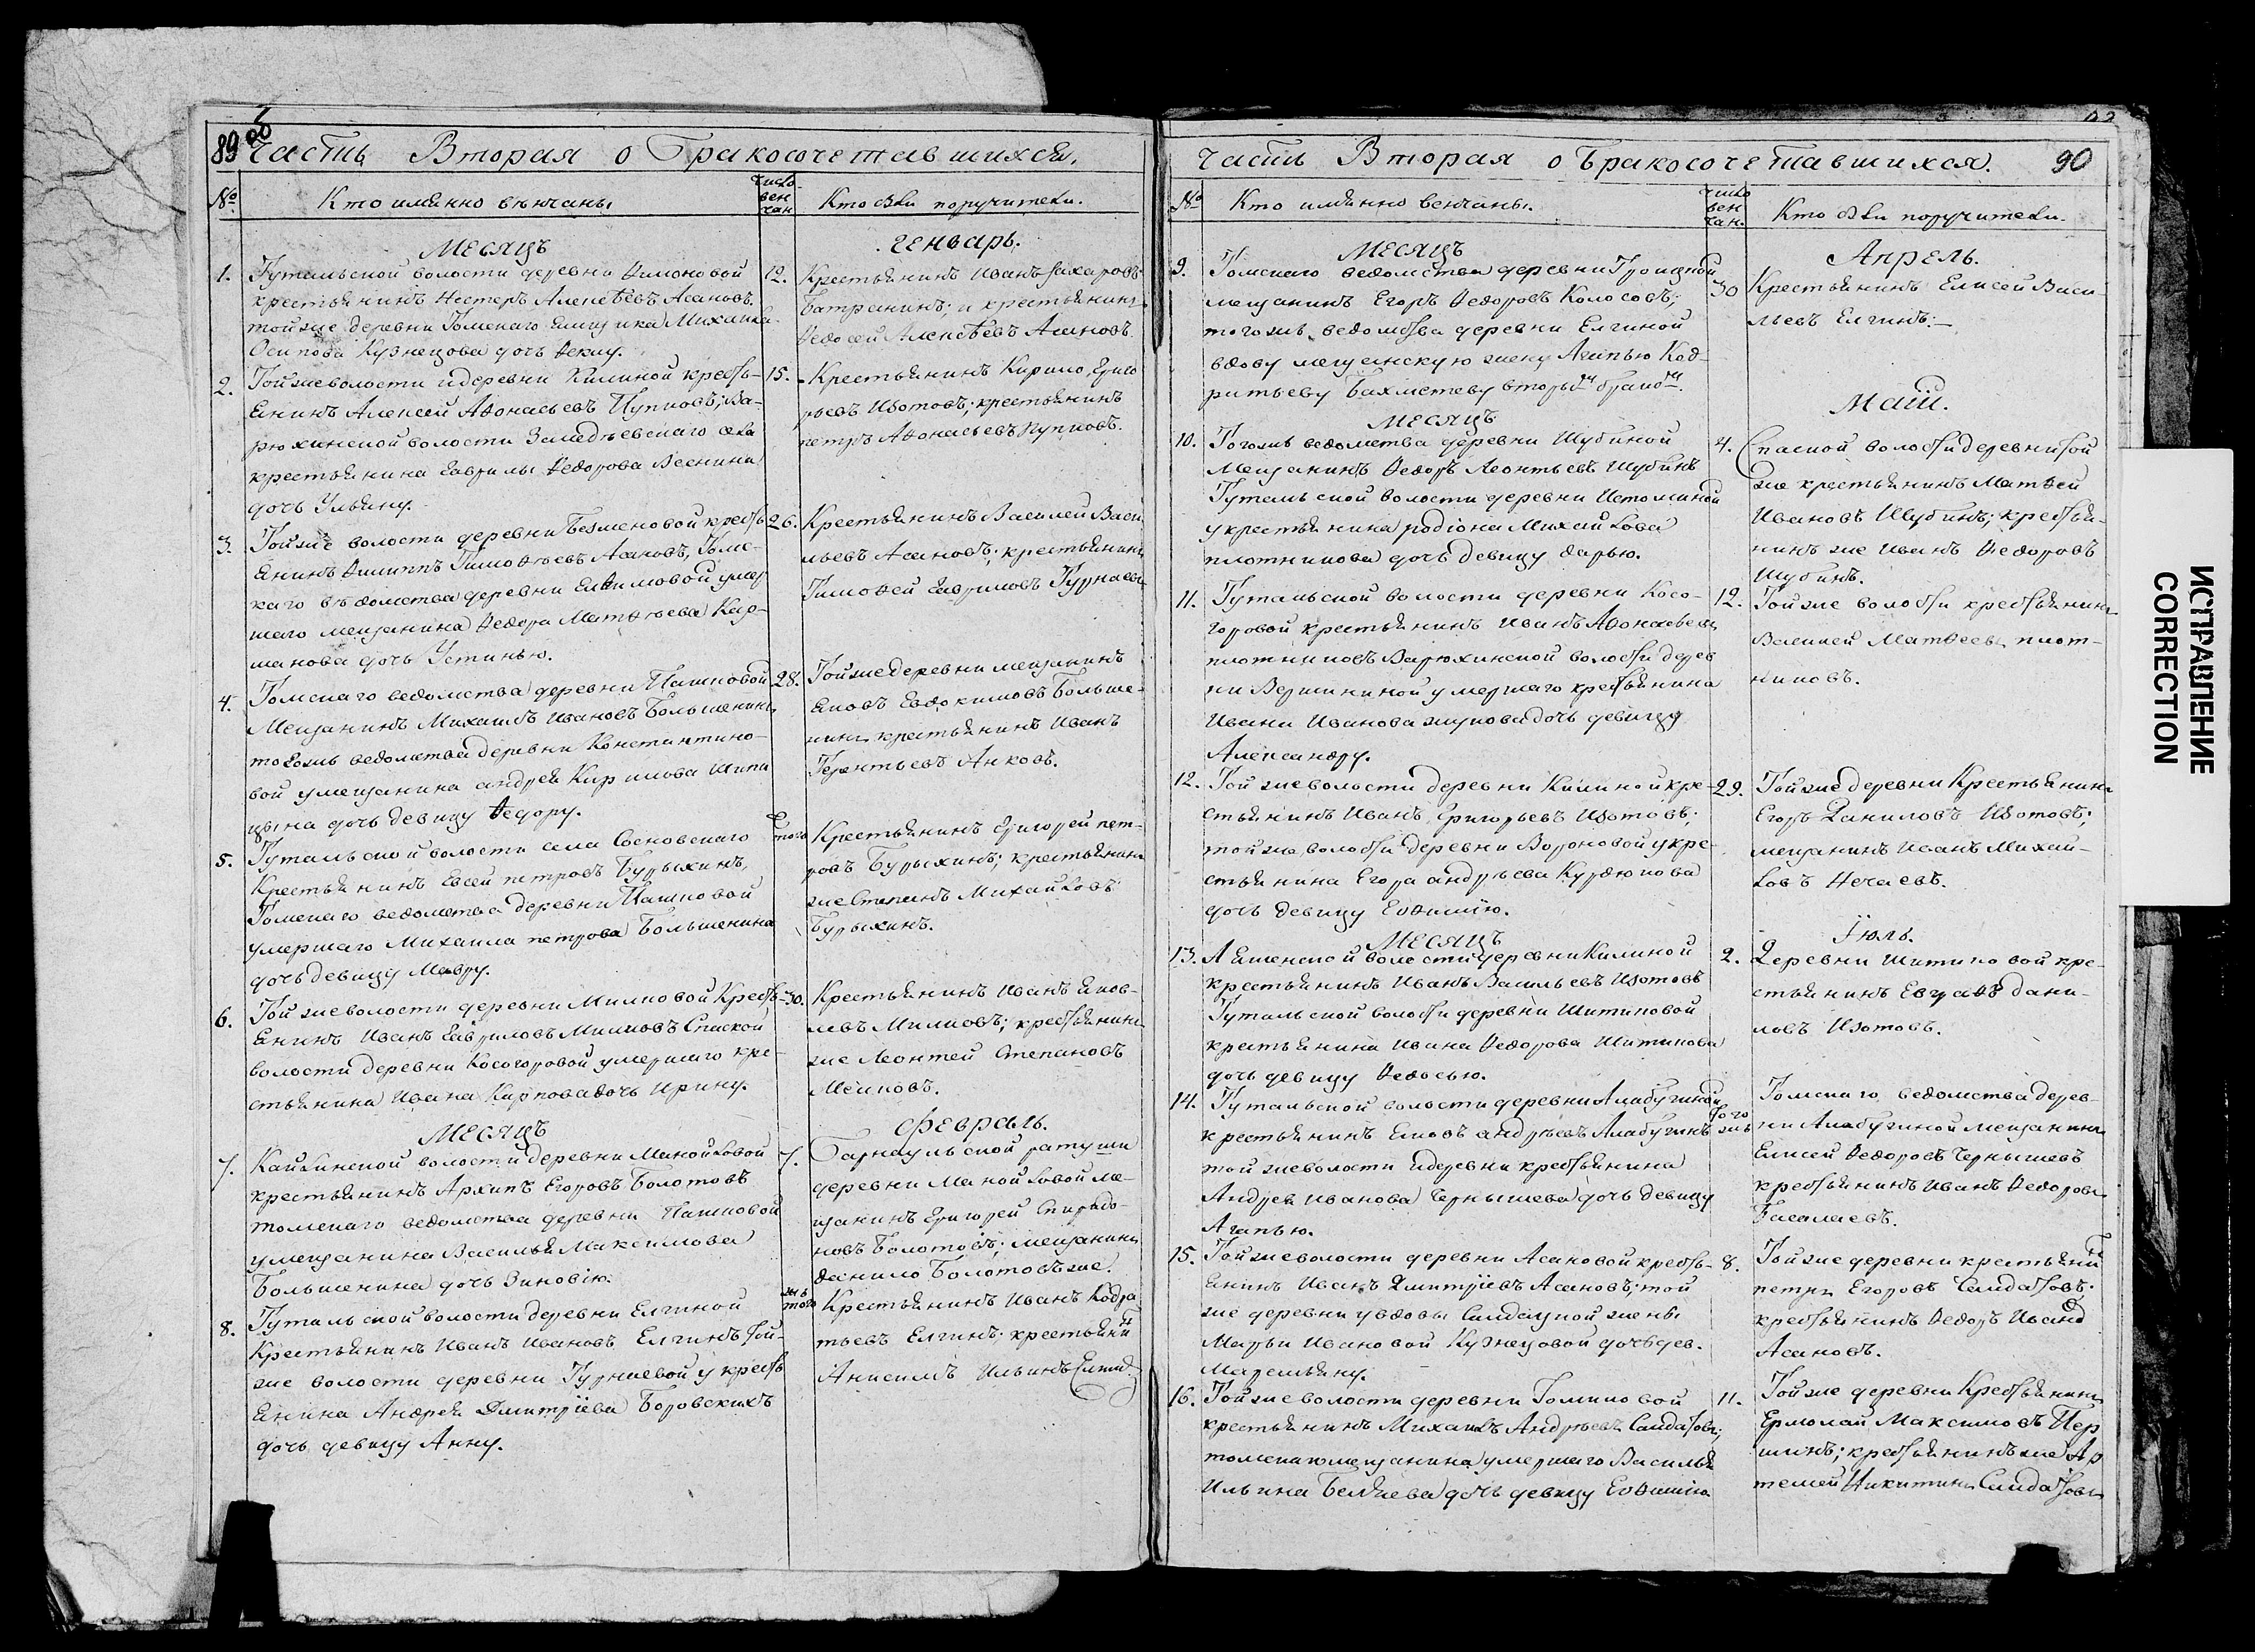 89 об
Часть Вторая о Бракосочетавшихся.
№
Кто имянно вѣнчаны
число вен чан
Кто были поручители.
Месяцъ
Генварь.
1. Тутальской волости деревни Филоновой
крестьянинъ Нестеръ Алексѣевъ Асановъ.
тойже деревни Томскаго ямщика Михаила
Осипова Кузнецова дочь Феклу.
12. Крестьянинъ Иванъ Захаровъ
Батранинъ; и крестьянинъ
Федосей Алексѣевъ Асановъ
2. Тойже волости и деревни Килиной кресть-
янинъ Алексей Афонасьевъ Пупковъ; Ва-
рюхинской волости Зеледѣевскаго села
крестьянина Гаврилы Федорова Веснина
дочь Ульяну.
15. Крестьянинъ Кирило Григо
рьевъ Изотовъ; крестьянинъ
петръ Афонасьевъ Пупковъ.
3. Тойже волости деревни Безменовой кресть
янинъ Филиппъ Тимофѣевъ Асановъ, Томс-
каго вѣдомства деревни Ефимовой умер
шаго мещанина Федора Матфѣева Кар-
манова дочь Устинью.
26. Крестьянинъ Василей Васи
льевъ Асановъ; крестьянинъ
Тимофей Гавриловъ Гурнаевъ
4. Томскаго ведомства деревни Пашковой
Мещанинъ Михаилъ Ивановъ Большенинъ
тогожъ ведомства деревни Константино-
вой у мещанина андрея Кирилова Шипи
цына дочь девицу Федору.
28. Тойже деревни мещанинъ
Яковъ Евдокимовъ Больше-
нинъ крестьянинъ Иванъ
Терентьевъ Анковъ.
5. Тутальской волости села Сосновскаго
Крестьянинъ Евсей петровъ Бурыхинъ,
Томскаго ведомства деревни Пашковой
умершаго Михаила петрова Большенина
дочь девицу Мавру.
того Крестьянинъ Григорей пет-
ровъ Бурыхинъ; крестьянинъ
же Степанъ Михайловъ
Бурыхинъ.
6. Тойже волости деревни Милковой Кресть-
янинъ Иванъ Гавриловъ Милковъ Спаской
волости деревни Косогоровой умершаго кре-
стьянина Ивана Карпова дочь Ирину.
30. Крестьянинъ Иванъ Яков-
левъ Милковъ; крестьянинъ
же Леонтей Степановъ
Мелковъ.
Месяцъ
Февраль.
7. Кайлинской волости деревни Манойловой
крестьянинъ Архипъ Егоровъ Болотовъ
томскаго ведомства деревни Пашковой
у мещанина Василья Максимова
Большенина дочь Зиновію.
7. Барнаульской ратуши
деревни Манойловой ме-
щанинъ Григорей Спиридо-
новъ Болотовъ; мещанинъ
данило Болотовъ же.
8. Тутальской волости деревни Елгиной
Крестьянинъ Иванъ Ивановъ Елгинъ той-
же волости деревни Гурнаевой у кресть
янина Андрея Дмитріева Боровскихъ
дочь девицу Анну.
того жъ Крестьянинъ Иванъ Кодра
тьевъ Елгинъ; крестьянинъ
Анисимъ Ильинъ Елгинъ
Часть Вторая о Бракосочетавшихся. 90
№
Кто имянно венчаны.
число вен чан.
Кто были поручители.
Месяцъ
Апрель.
9. Томскаго ведомства деревни Троицкой
мещанинъ Егоръ Федоровъ Колосовъ;
того жъ ведомства деревни Елгиной
вдову мещанскую жену Агапью Код-
ратьеву Бахметеву вторымъ бракомъ.
30 Крестьянинъ Елисей Васи
льевъ Елгинъ:—
Месяцъ
Маій.
10. Тогожъ ведомства деревни Шубиной
Мещанинъ Федоръ Леонтьевъ Шубинъ
Тутальской волости деревни Истоминой
у крестьянина родіона Михайлова
плотникова дочь девицу дарью.
4. Спаской волости деревни той
же крестьянинъ Матвей
Ивановъ Шубинъ; крестья-
нинъ же Иванъ Федоровъ
Шубинъ.
11. Тутальской волости деревни Косо-
горовой крестьянинъ Иванъ Афонасьевъ
плотниковъ Варюхинской волости дерев
ни Вершининой умершаго крестьянина
Ивана Иванова жукова дочь девицу
Александру.
12. Тойже волости крестьянинъ
Василей Матвеевъ плот-
никовъ.
12. Тойже волости деревни Килиной кре-
стьянинъ Иванъ Григорьевъ Изотовъ;
тойже волости деревни Вороновой у кре-
стьянина Егора андрѣева Курдюкова
дочь девицу Евфимію.
29. Тойже деревни Крестьянинъ
Егоръ Даниловъ Изотовъ;
мещанинъ Иванъ Михай-
ловъ Нечаевъ.
Месяцъ
Іюль.
13. Ояшенской волости деревни Килиной
крестьянинъ Иванъ Васильевъ Изотовъ
Тутальской волости деревни Шитиковой
крестьянина Ивана Федорова Шитикова
дочь девицу Федосью.
2. Деревни Шитиковой кре-
стьянинъ Евграфъ дани-
ловъ Изотовъ.
14. Тутальской волости деревни Алабугиной
крестьянинъ Яковъ андрѣевъ Алабугинъ
той же волости и деревни крестьянина
Андрея Иванова Чернышева дочь девицу
Агапью.
того жъ Томскаго ведомства дерев-
ни Алабугиной мещанинъ
Елисей Федоровъ Чернышевъ
крестьянинъ Иванъ Федоровъ
Басалаевъ.
15. Тойже волости деревни Асановой кресть-
янинъ Иванъ Дмитріевъ Асановъ; той
же деревни у вдовы Салдацкой жены
Марьи Ивановой Кузнецовой дочь дев.
Маремьяну.
8. Тойже деревни крестьянинъ
петръ Егоровъ Салдатовъ.
крестьянинъ Федоръ Ивановъ
Асановъ.
16. Тойже волости деревни Томиловой
крестьянинъ Михаилъ Андрѣевъ Салдатовъ;
томскаго мещанина умершаго Василья
Ильина Беляева дочь девицу Евфимію
11. Тойже деревни Крестьянинъ
Ермолай Максимовъ Пер
шинъ; крестьянинъ же Ар
темей Никитинъ Салдатовъ
ИСПРАВЛЕНИЕ
CORRECTION